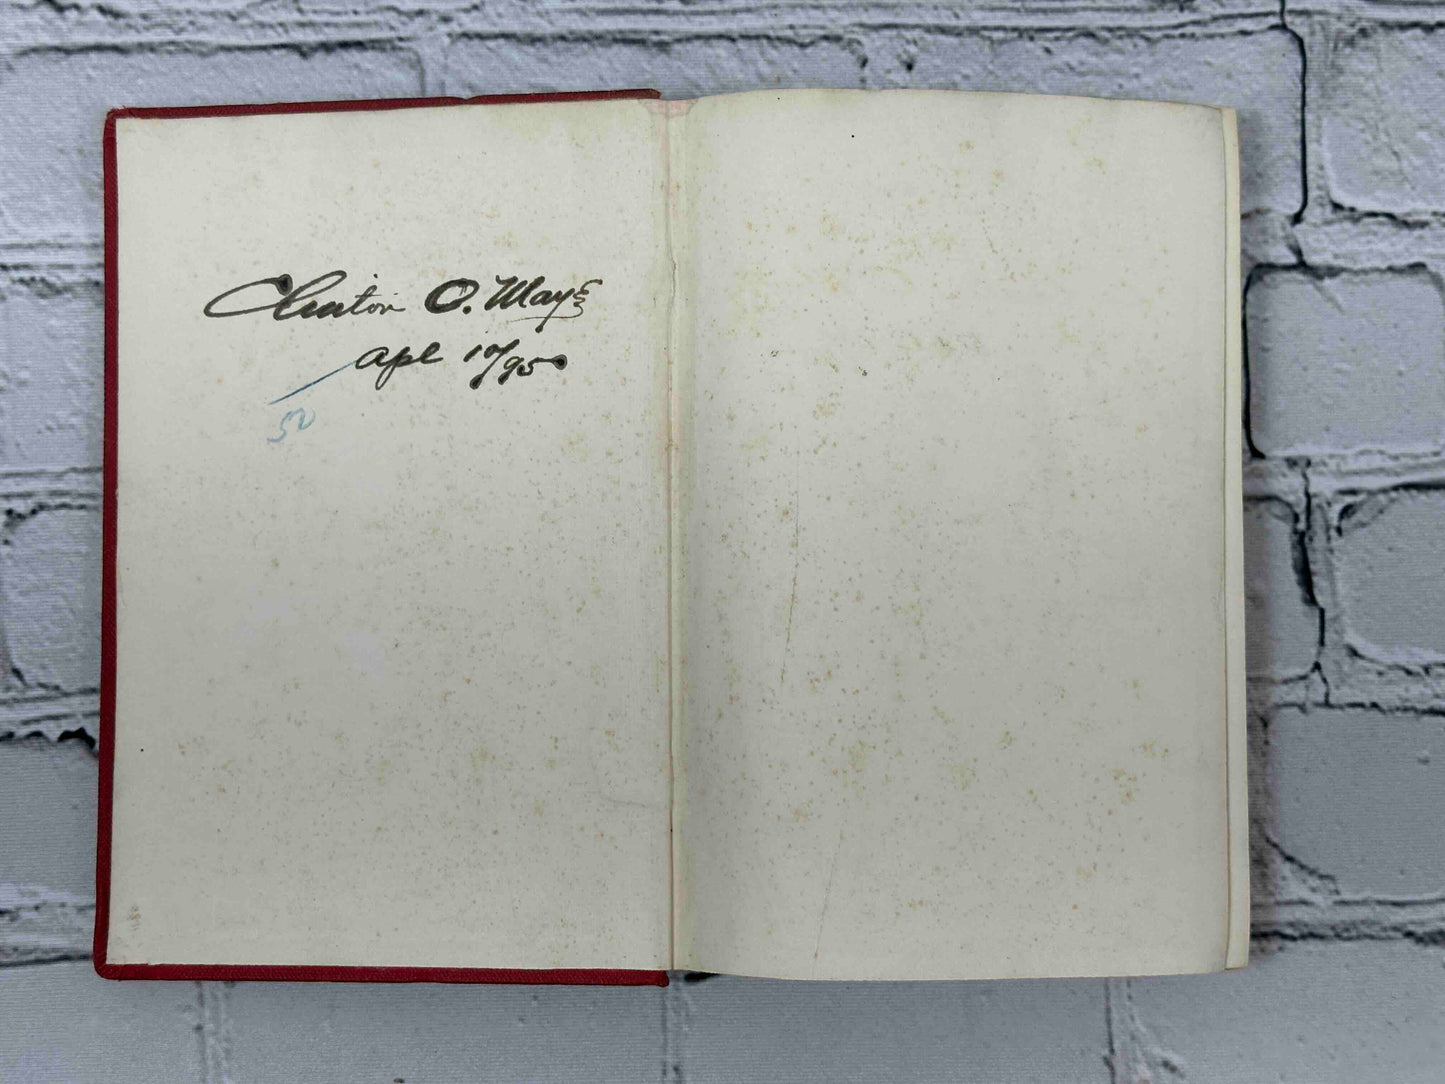 Clinton O. Mays
Apl 10/95
50